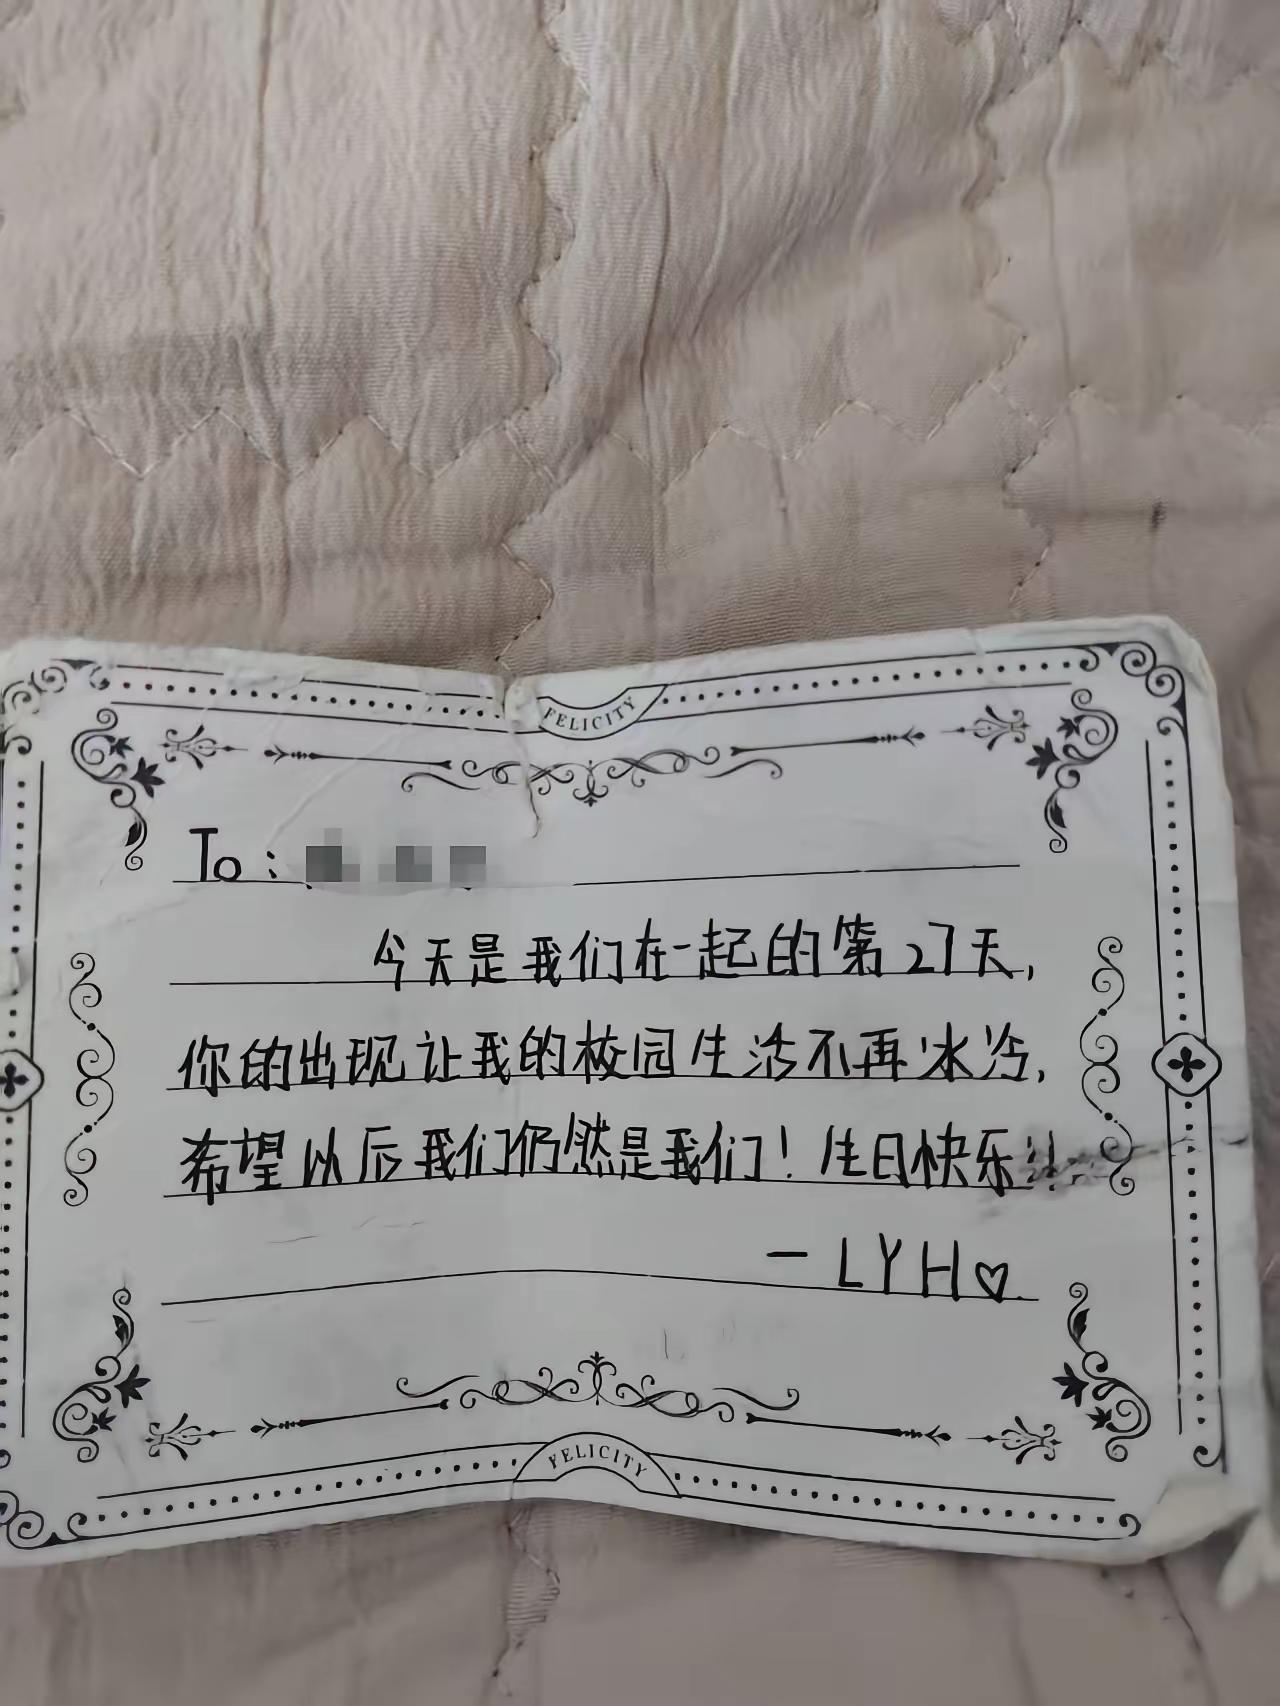 FELICITY
To：
今天是我们在一起的第27天，
你的出现让我的校园生活不再冰冷，
希望以后我们仍然是我们！生日快乐！！
—LYH♡
FELICITY